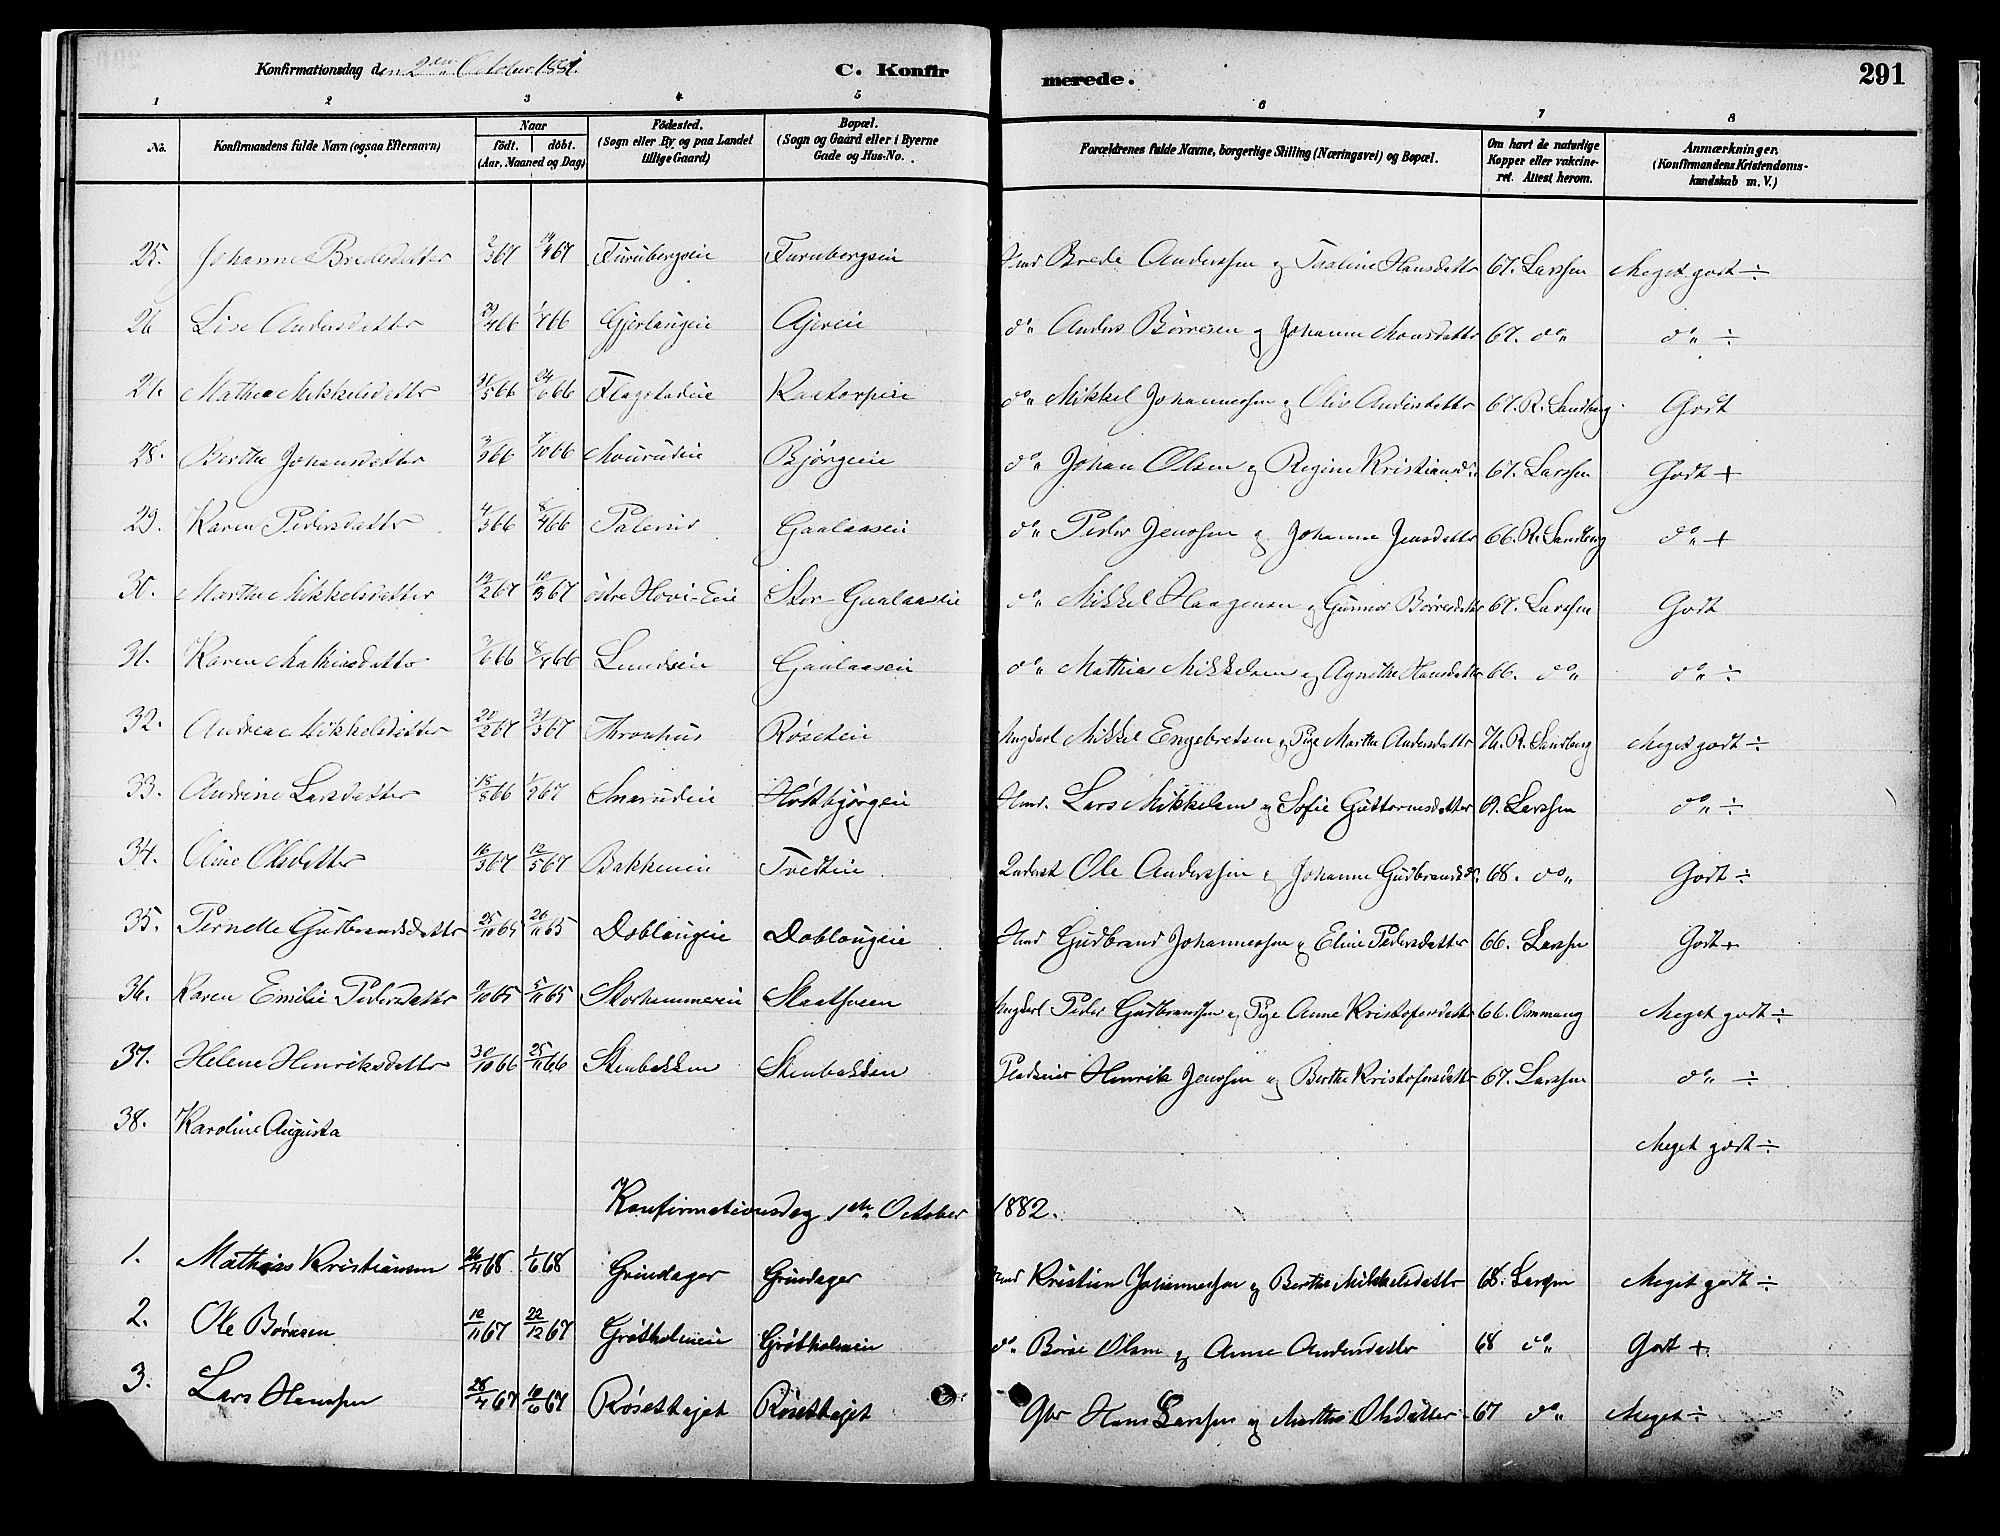 Konfirmationsdag den 2den October 1881.
C. Konfirmerede.
291
1 2 3 4 5 6 7 8
No. Konfirmandens fulde Navn (ogsaa Efternavn) Naar født. døbt. (Aar, Maaned og Dag) Fødested. (Sogn eller By og paa Landet tillige Gaard) Bopæl. (Sogn og Gaard eller i Byerne Gade og Hus-No. Forældrenes fulde Navne, borgerlige Stilling (Næringsvei) og Bopæl. Om havt de naturlige Kopper eller vakcineret. Attest herom. Anmærkninger. (Konfirmandens Kristendomskundskab m. V.)
25. Johanne Bredesdatter 2/3 67 14/4 67 Furubergseie Furubergseie Hmd Brede Anderssen og Hansdatter 67. Larssen Meget godt ÷
26 Lise Andersdatter 1/4 66 Gjerlaugeie Ajereie do Anders Børresen og Johanne Monsdatter 67. do do ÷
27. Mathea Mikkelsdatter 31/5 66 24/6 66 Flagstadeie Kaatorpeie do Mikkel Johannessen og Oliv Andersdatter 67. R. Sandberg Godt
28. Berthe Johansdatter 7/10 66 Bjørgeeie do Johan Olsen og Regine Kristiansd. 67. Larssen Godt +
29. Karen Pedersdatter 4/3 66 8/4 66 Palerud Gaalaaseie do Peder Jenssen og Johanne Jensdatter 66. R. Sandberg do +
30. Marthe Mikkelsdatter 19/2 67 10/3 67 østre Hovi-Eie Stor-Gaalaaseie do Mikkel Haagensen og Gunnor Børresdatter 67. Larssen Godt
31. Karen Mathiasdatter 8/4 66 Lundseie Gaalaaseie do Mathias Mikkelsen og Agnethe Hansdatter 66. do do ÷
32. Andrea Mikkelsdatter 22/2 67 31/3 67 Thronhus Røseteie Ungkarl Mikkel Engebretsen og Pige Marthe Andersdatter 76. R. Sandberg Meget godt ÷
33. Andrine Larsdatter 18/8 66 1/1 67 Snarudeie Høstbjørgeie Hmd. Lars Mikkelsen og Sofie Guttormsdatter 69. Larssen do ÷
34. Oline Olsdatter 16/3 67 12/5 67 Bakkeneie Tveteie Ole Anderssen og Johanne Gudbrandsd. 68. do Godt ÷
35. Pernelle Gudbrandsdatter 25/10 65 26/11 65 Doblougeie Doblougeie Hmd Gudbrand Johannessen og Eline Pedersdatter 66. Larssen Godt +
36. Karen Emilie Pedersdatter 9/10 65 5/11 65 Storhammereie Staatsveen Ungkarl Peder Gudbrandssen og Pige Anne Kristofersdatter 66. Ommang Meget godt ÷
37. Helene Henriksdatter 30/10 66 25/11 66 Stenbakken Stenbakken Pladseier Henrik Jenssen og Berthe Kristofersdatter 67. Larssen do ÷
38. Karoline Augusta Meget godt ÷
Konfirmationsdag 1ste October 1882.
1. Mathias Kristiansen 26/4 68 1/6 68 Grindager Grindager Hmd Kristian Johannessen og Berthe Mikkelsdatter 68. Larssen Meget godt ÷
2. Ole Børresen 12/11 67 22/12 67 Grøtholmeie Grøtholmeie do Børre Olsen og Anne Andersdatter 68 do Godt +
3. Lars Hanssen 28/4 67 10/6 67 Røsethaget Røsethaget Gbr Hans Larssen og Marthe Olsdatter 67 do Meget ÷